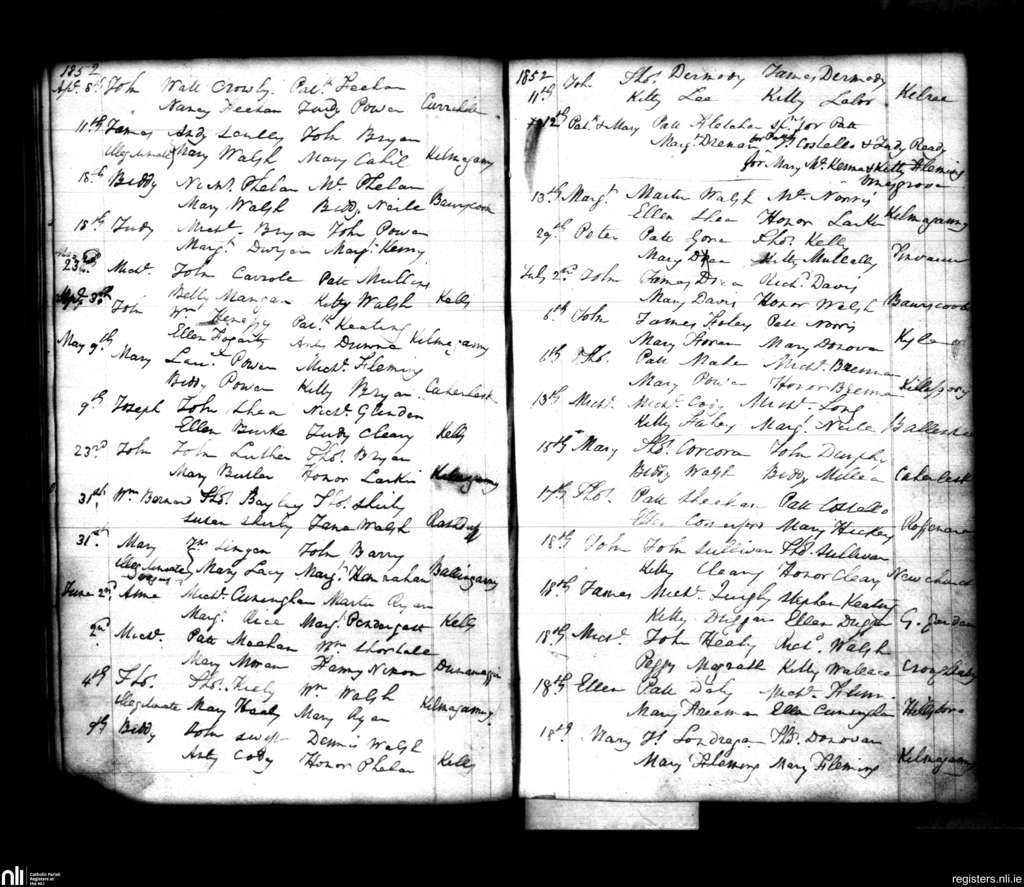 1852
Apl. 8th John Watt Crowly. Patk. Feehan
Nancy Feehan Judy Power
11th James Andy Scully John Bryan
Illegitimate Mary Walsh Mary Cahil Kilmaganny
18th Biddy Nichs. Phelan Mt. Phelan
Mary Walsh Biddy Neile Baurscoob
18th Judy Michl. Bryan John Power
Margt. Dwyer Margt. Kenny
23 Michl. John Carrole Patt Mullins
Betty Mangan Kitty Walsh Kells
John Wm. Henesy Patk. Keating
Ellen Fogarty Dunna Kilmaganny
May 9th Mary Laur. Power Michl. Fleming
Biddy Power Kitty Bryan Caherlesk
9th Joseph John Shea Nichs. Glindon
Ellen Burke Judy Cleary Kells
23rd John John Luther Thos. Bryan
Mary Butler Honor Larkin Kilmaganny
31st. Wm Bernard Thos. Bayley Thos. Shirly
Susan Shirly Jane Walsh
31st Mary Lingan John Barry
Illegitimate Mary Lacy Margt. Hannrahan Ballingarry
June 2nd. Anne Michl. Cuningham Martin Ryan
Margt. Rice Margt. Pendergast Kells
2nd Michl. Patt Meehan Wm. Shortale
Mary Moran Fanny Nixon Dunamaggin
4th Thos. Thos. Kiely Wm Walsh
Illegitimate Mary Healy Mary Ryan Kilmaganny
9th Biddy John Swift Dennis Walsh
Anty Cody Honor Phelan Kells
1852
11th John Thos. Dermody James Dermody
Kitty Lee Kitty Lalor Kilree
12th Patk. & Mary Patt Sprs. for Patt
Margt. Drenan Js. Costello & Judy Ready
for Mary Mt. Kenna & Kitty Fleming
13th Margt. Martin Walsh Mt. Norris
Ellen Shea Honor Larkin Kilmaganny
29th Peter Patt Gore Thos. Kelly
Mary Kitty Mullally
July 2nd John James Richd. Davis
Mary Davis Honor Walsh Baurscoob
6th John James Foley Patt Norris
Mary Horan Mary Donovan
6th Thos. Patt Maher Michl. Brennan
Mary Power Honor Brennan
13th Michl. Michl. Cody Michl. Long
Kitty Fahey Margt. Neile
15th Mary Thos. Corcoran John Dunphy
Biddy Walsh Biddy Millea Caherlesk
17th Thos. Patt Sheehan Patt Costello
Ellen Comerford Mary Hickey Rossenara
18th John John Sullivan Thos. Sullivan
Kitty Cleary Honor Cleary Newchurch
18th James Michl. Quigly Stephen Keating
Kitty Duggan Ellen Duggan
18th Michl. John Healy Richd. Walsh
Peggy Magrath Kitty Wallace
18th Ellen Patt Daly Michl.
Mary Freeman Ellen Cuningham
18th Mary Js. Londregan Thos. Donovan
Mary Fleming Mary Fleming Kilmaganny
nli Catholic Parish
Registers at
the NLI
registers.nli.ie